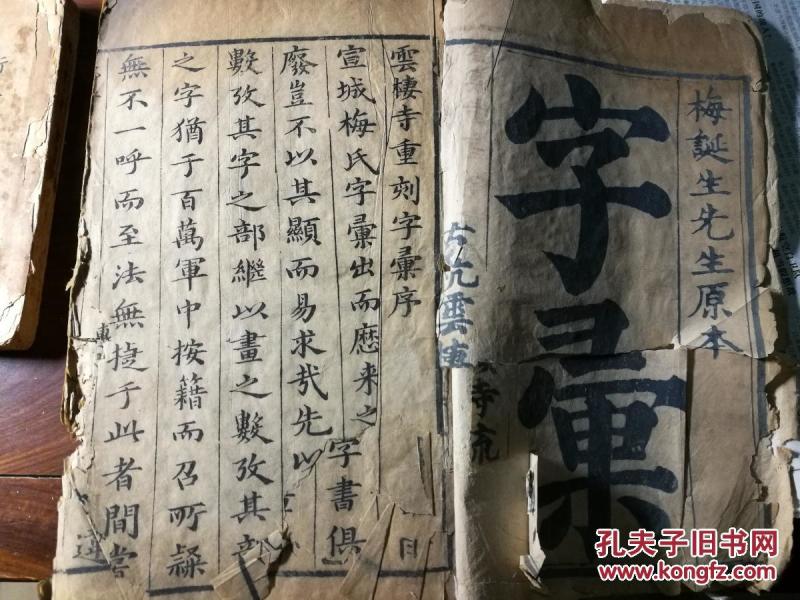 梅誕生先生原本
字彙
雲棲寺重刻字彙序
宣城梅氏字彙出而歷來之字書俱
廢豈不以其顯而易求哉先以
數攷其字之部繼以畫之數攷其部
之字猶于百萬軍中按籍而召所
無不一呼而至法無捷于此者間嘗
孔夫子旧书网
www.kongfz.com